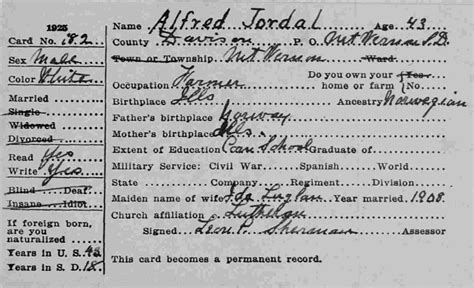 1925
Name Alfred Jordal Age 43
Card No. 182
County Davison P. O. Mt Vernon S.D.
Sex Male
Town or Township Mt Vernon Ward
Color White
Occupation Farmer Do you own your home or farm Yes No.
Married
Birthplace Ills Ancestry Norwegian
Single
Father's birthplace Norway
Widowed
Mother's birthplace Ills.
Divorced
Extent of Education Com School Graduate of
Read Yes
Military Service: Civil War. Spanish. World
Write Yes
State Company Regiment Division
Blind Deaf
Maiden name of wife Ida Year married 1908.
Insane Idiot
Church affiliation Lutheran
If foreign born, are you naturalized
Signed Leon P. Sherman Assessor
Years in U. S. 43
Years in S. D. 18
This card becomes a permanent record.